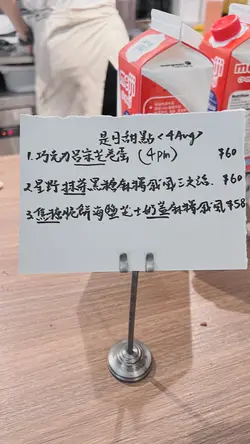 是日甜點 <4 Aug>
1. 巧克力呂宋芒卷蛋 (4pm) $60
2. 星野抹茶黑糖麻糬戚風三文治. $60
3. 焦糖脆餅海鹽芝士奶蓋麻糬戚風 $58